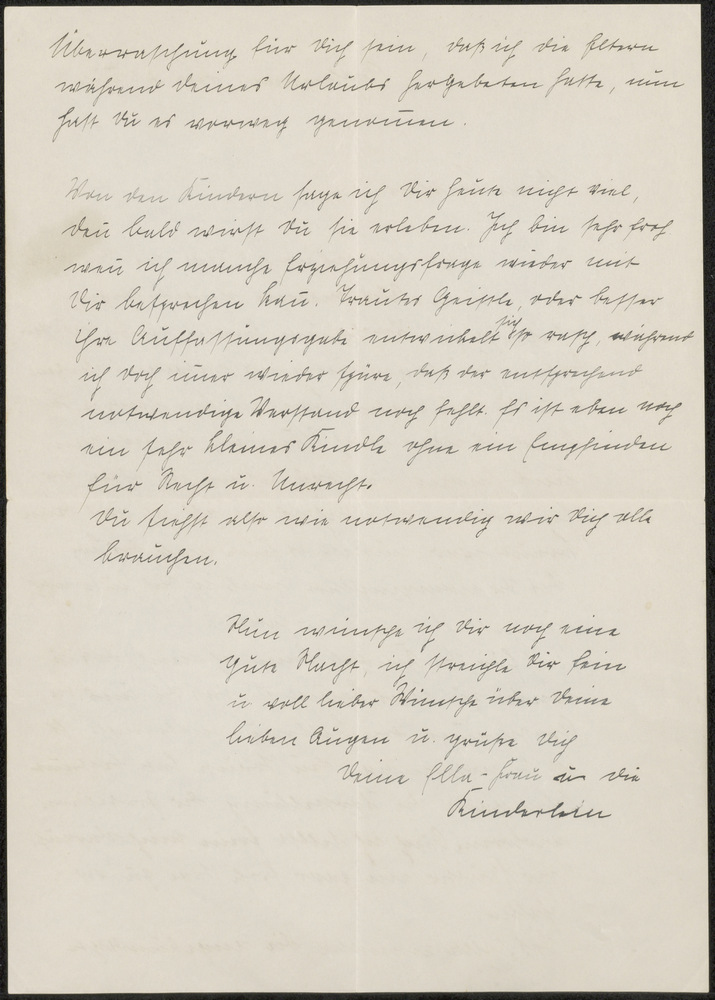 Überraschung für Dich sein, daß ich die Eltern
während Deines Urlaubs hergebeten hatte, nun
hast Du es vorweg genom̅en.
Von den Kindern sage ich Dir heute nicht viel,
den̅ bald wirst Du sie erleben. Ich bin sehr froh
wen̅ ich manche Erziehungsfrage wieder mit
Dir besprechen kan̅. Trautes Geistle, oder besser
ihre Auffassungsgabe entwickelt sich so rasch, während
ich doch im̅er wieder spüre, daß der entsprechend
notwendige Verstand noch fehlt. Es ist eben noch
ein sehr kleines Kindle ohne ein Empfinden
für Recht u. Unrecht.
Du siehst also wie notwendig wir Dich alle
brauchen.
Nun wünsche ich Dir noch eine
gute Nacht, ich streichle Dir fein
u. voll lieber Wünsche über Deine
lieben Augen u. grüße Dich
Deine Ella-Frau u die
Kinderlein